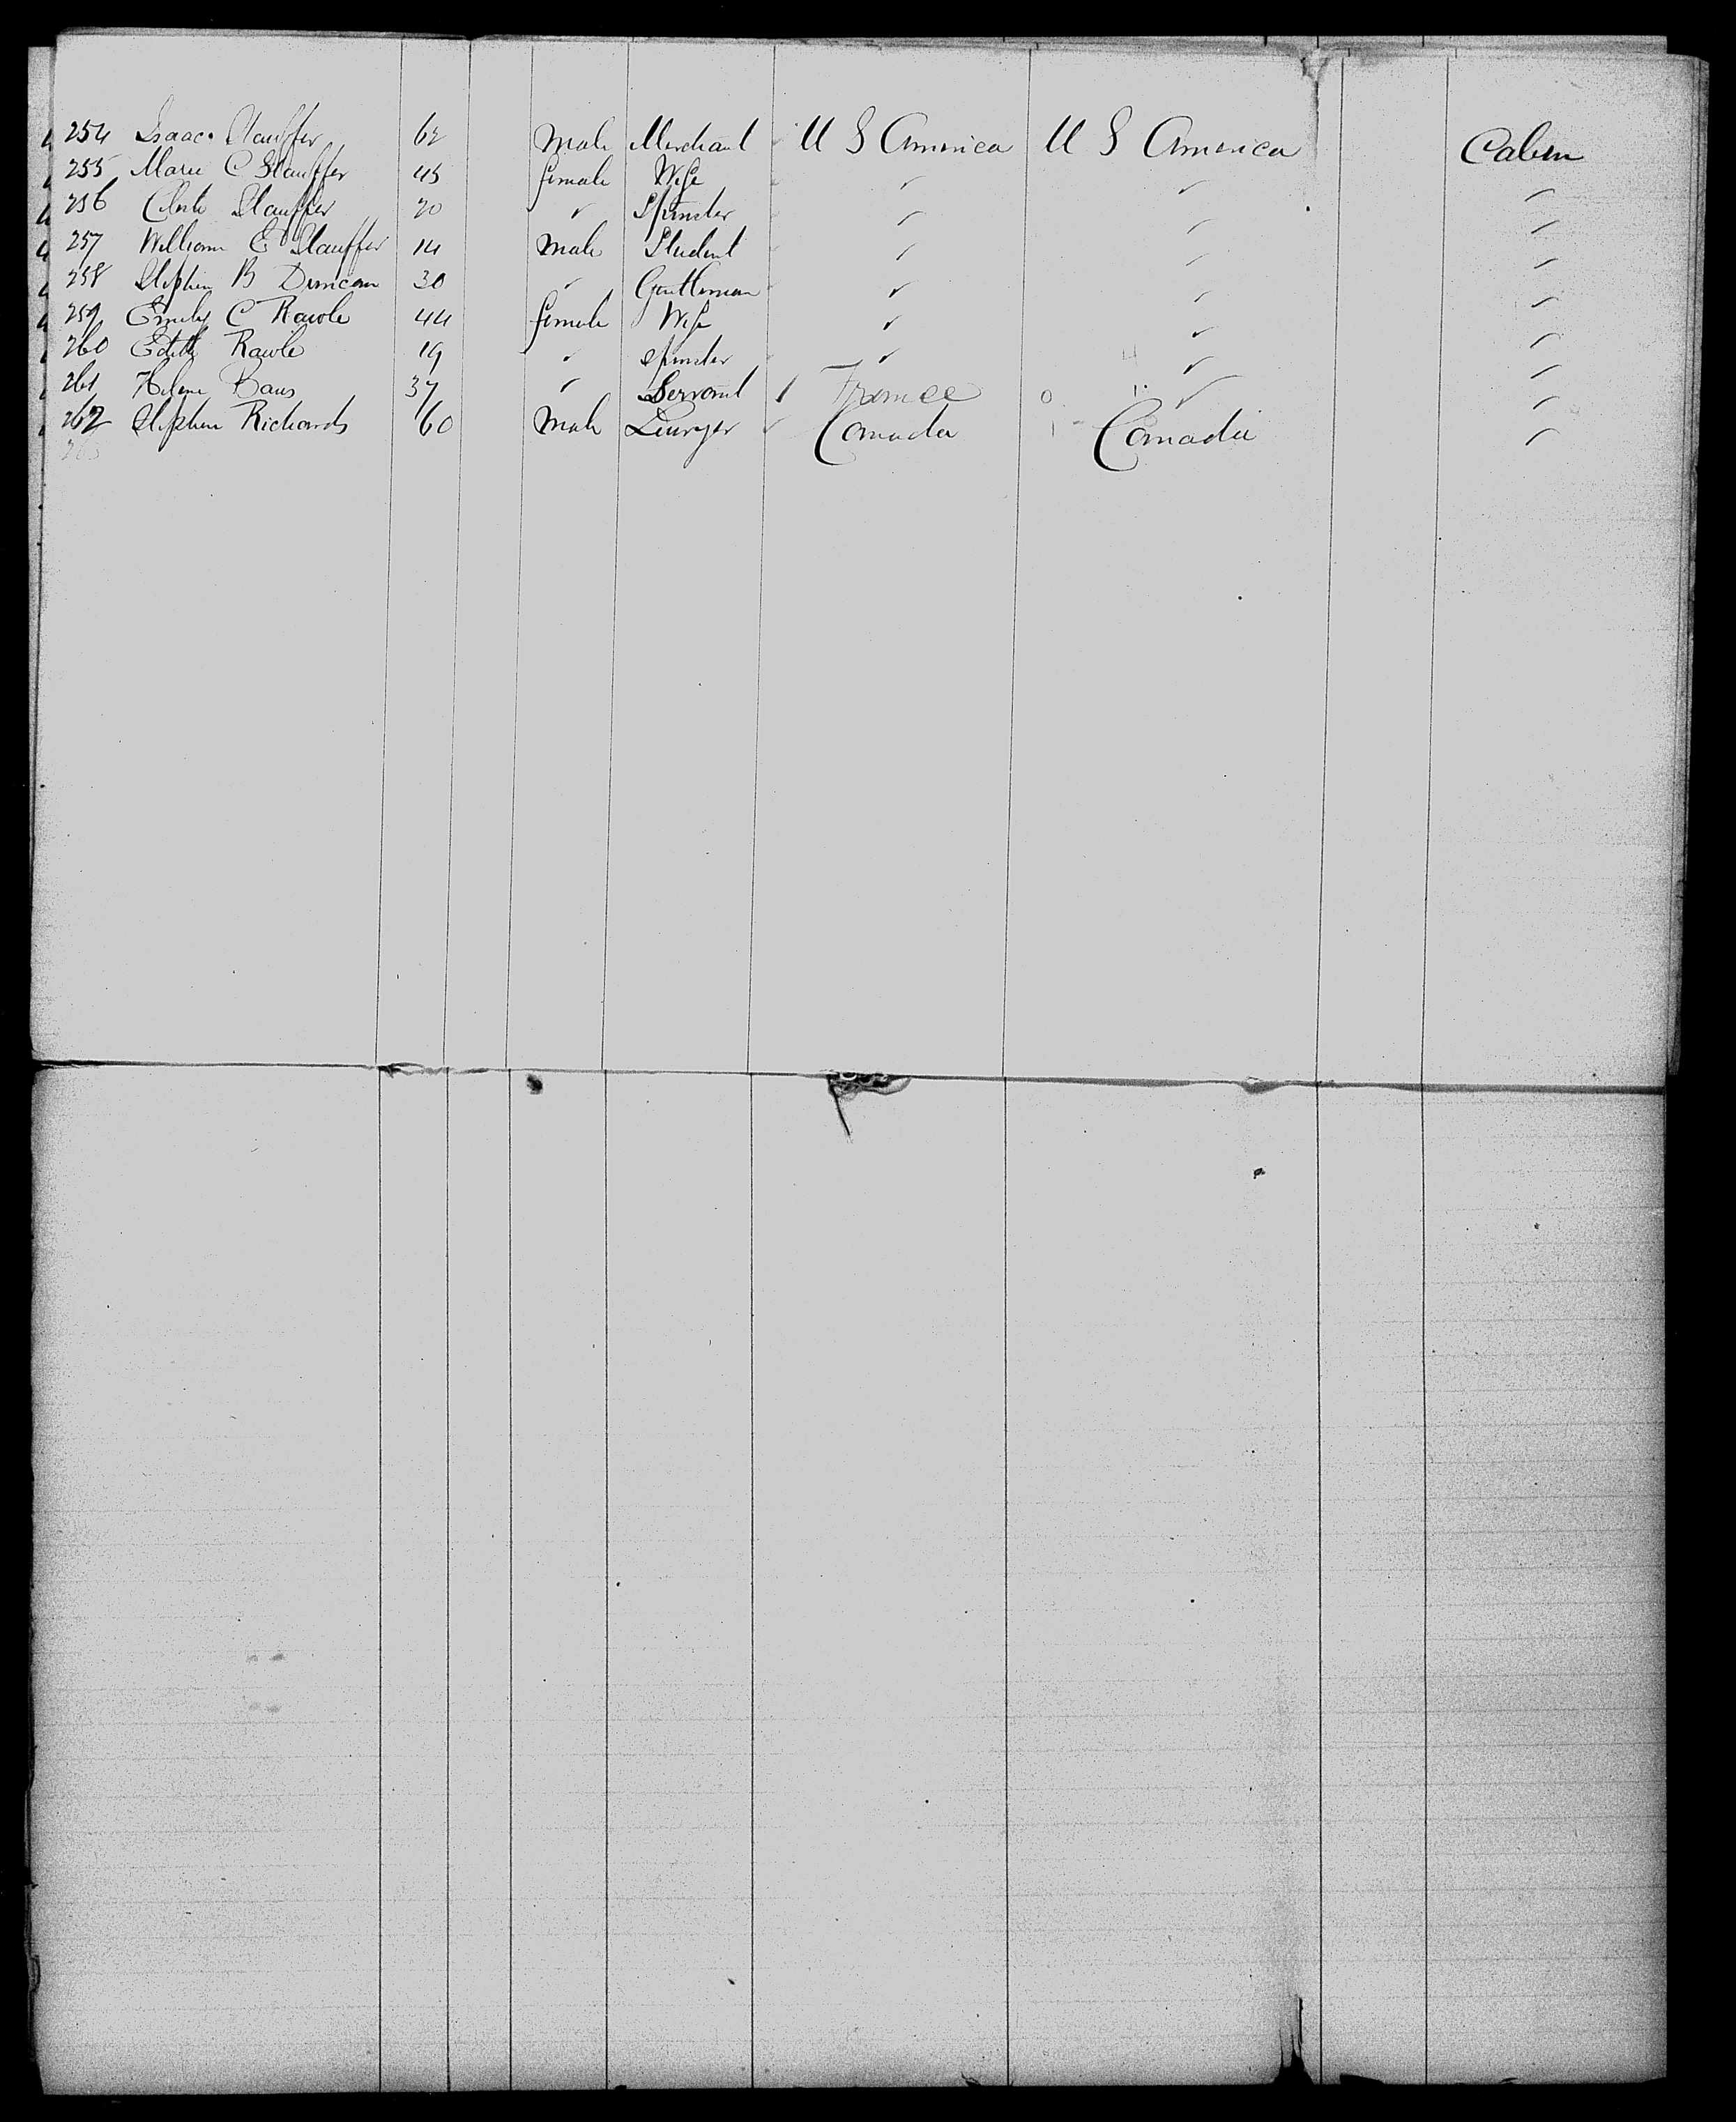 254 Isaac Stauffer 62 Male Merchant U S America U S America Cabin
255 Marie C Stauffer 45 female Wife " " "
256 Stauffer 20 " Spinster " " "
257 William E Stauffer 14 Male Student " " "
258 Stephen B Duncan 30 " Gentleman " " "
259 Emily C Rawle 44 female Wife " " "
260 Edith Rawle 19 " Spinster " " "
261 Helene Baus 37 " Servant France " "
262 Stephen Richards 60 Male Lawyer Canada Canada "